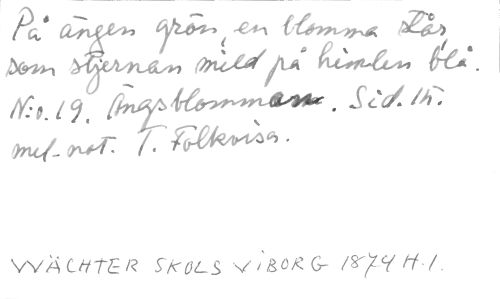 På ängen grön, en blomma står,
som stjernan mild på himlen blå.
N:o. 19. Ängsblomman. Sid. 15.
mel-not. T. Folkvisa.
WÄCHTER SKOLS VIBORG 1874 H.1.